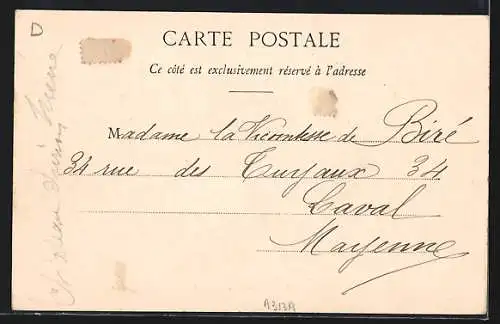 D
CARTE POSTALE
Ce côté est exclusivement réservé à l'adresse
Madame la Vicomtesse de Biré
34 rue des Tuyaux 34
Laval
Mayenne
A313A